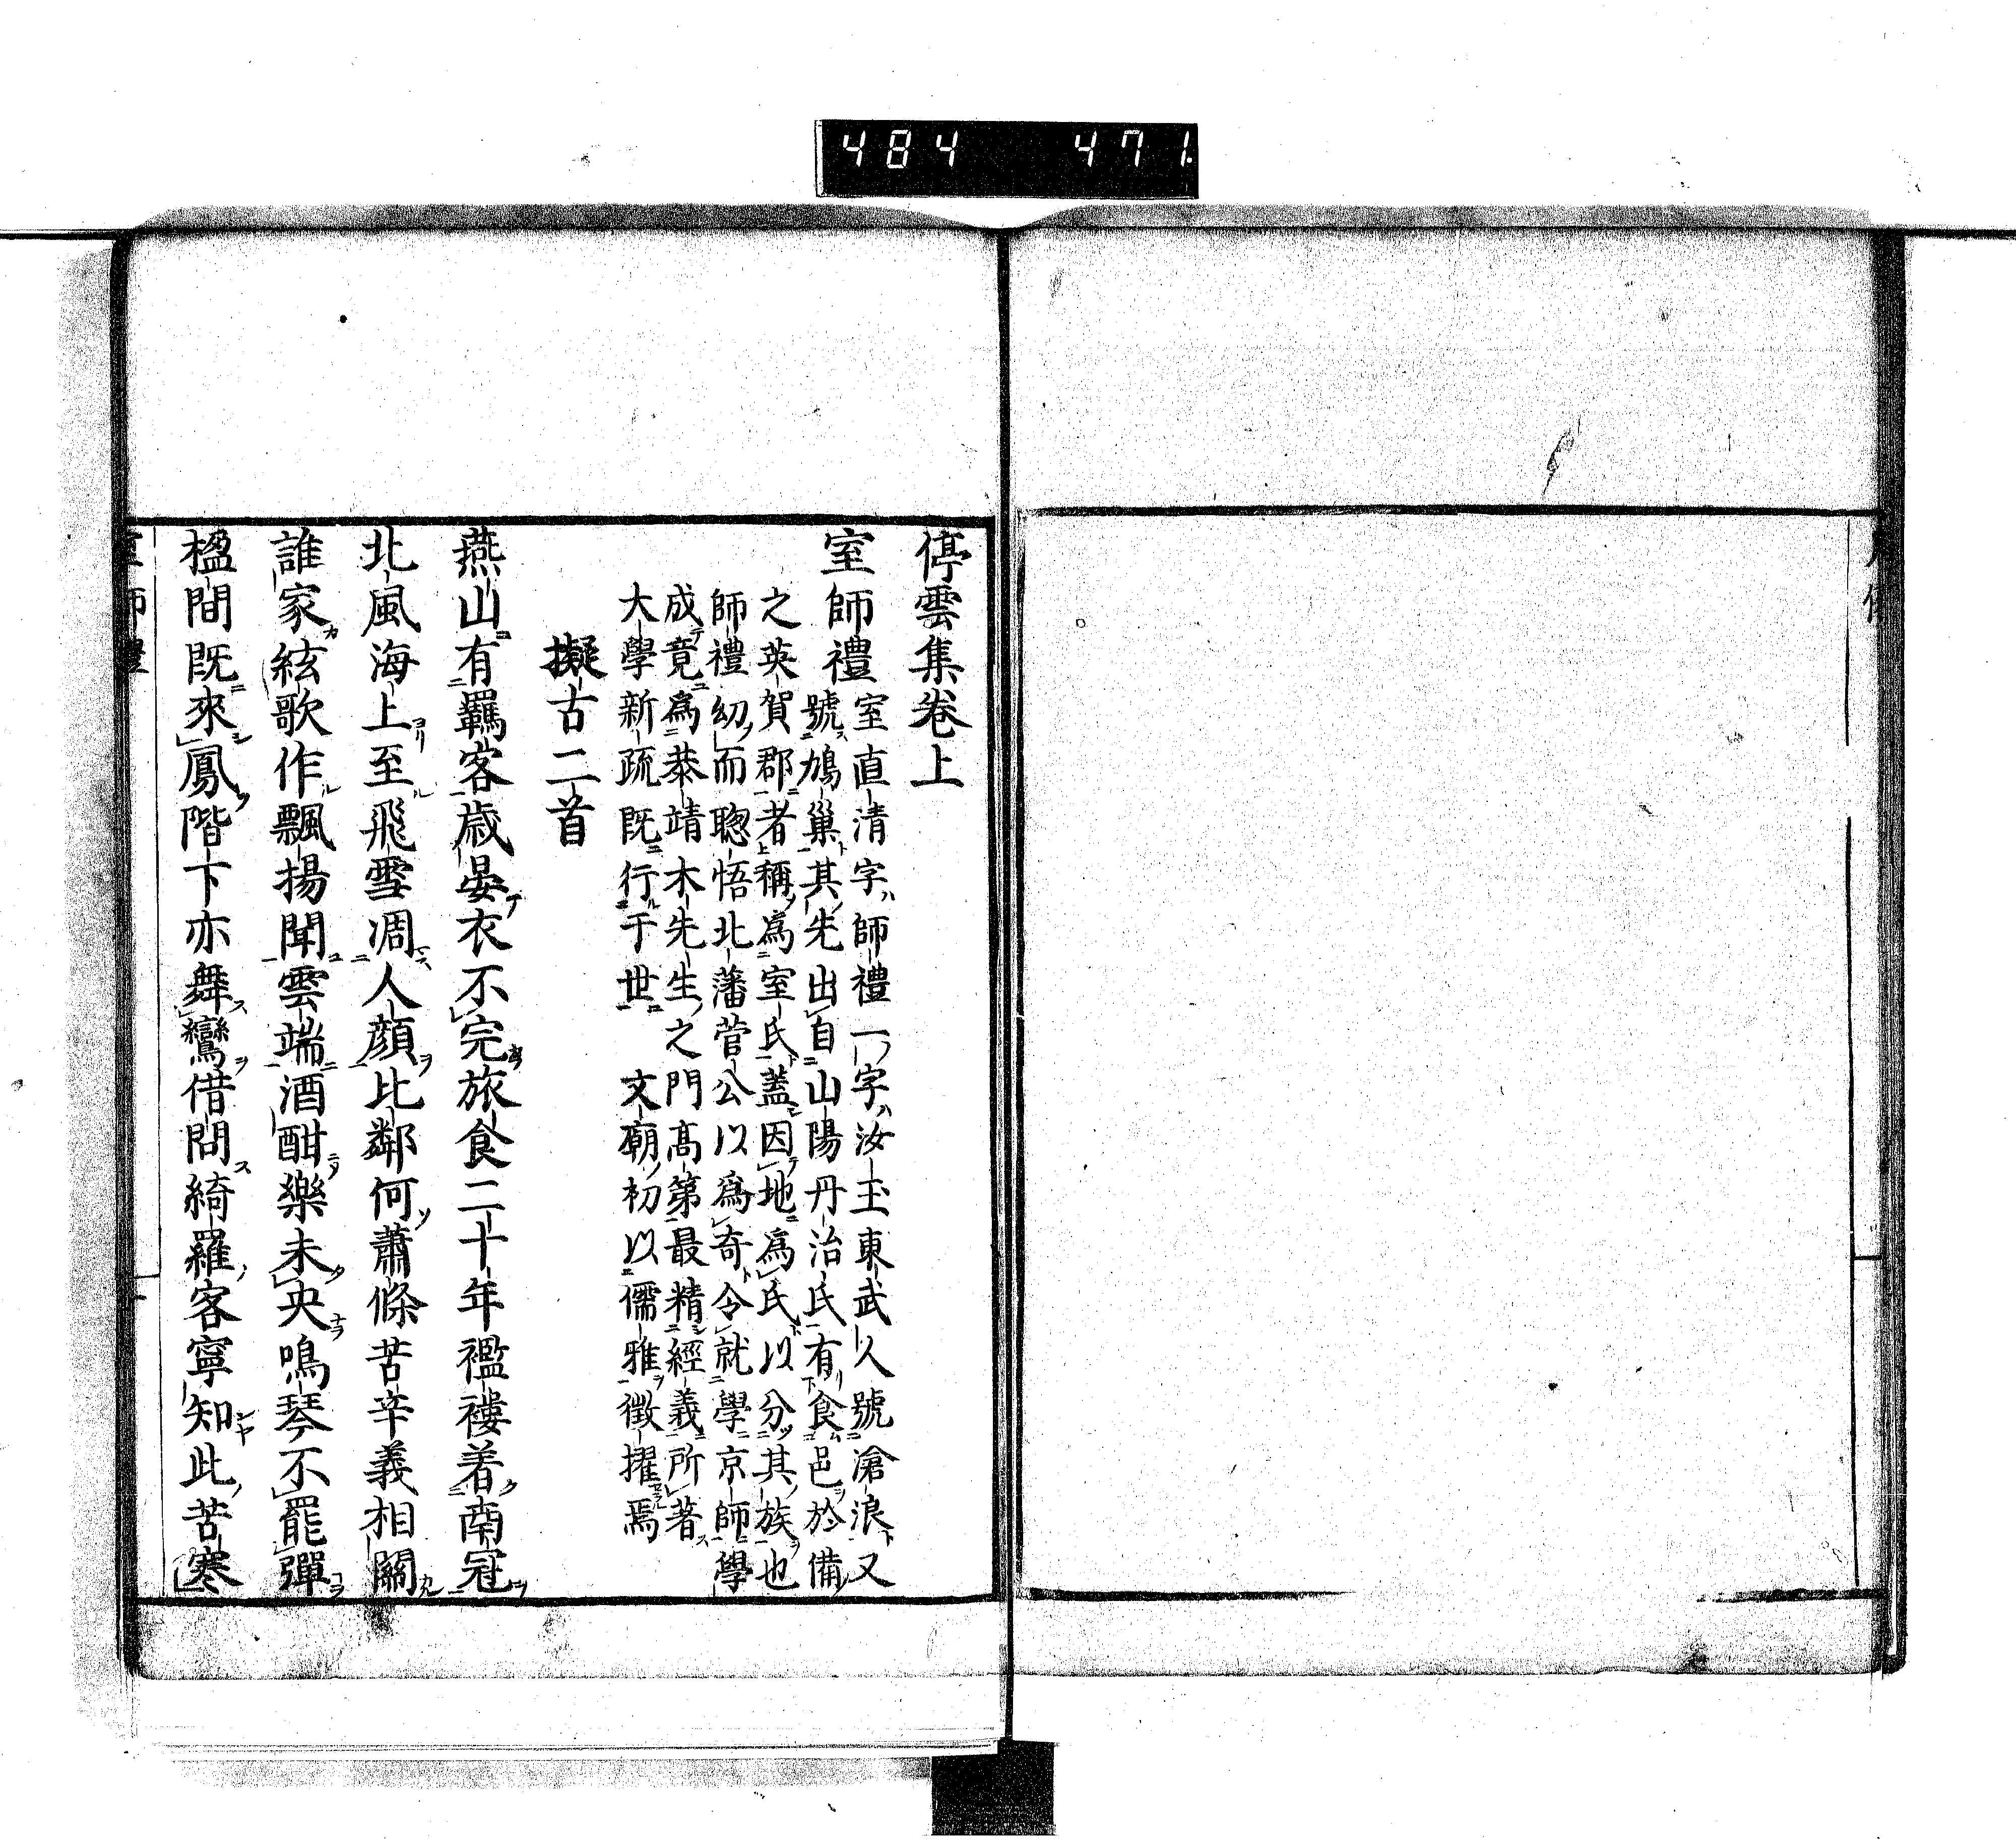 484 471
停雲集卷上
室師禮 室直清字師禮一字汝玉東武人號滄浪又
號鳩巢其先出自山陽丹治氏有食邑於備
之英賀郡者稱爲室氏蓋因地爲氏以分其族也
師禮幼而聰悟北藩菅公以爲奇令就學京師學
成竟爲恭靖木先生之門高第最精經義所著
大學新疏既行于世 文廟初以儒雅徵擢焉
擬古二首
燕山有羈客歲晏衣不完旅食二十年襤褸着南冠
北風海上至飛雪凋人顏比鄰何蕭條苦辛義相關
誰家絃歌作飄揚聞雲端酒酣樂未央鳴琴不罷彈
楹間既來鳳階下亦舞鸞借問綺羅客寧知此苦寒
室師禮